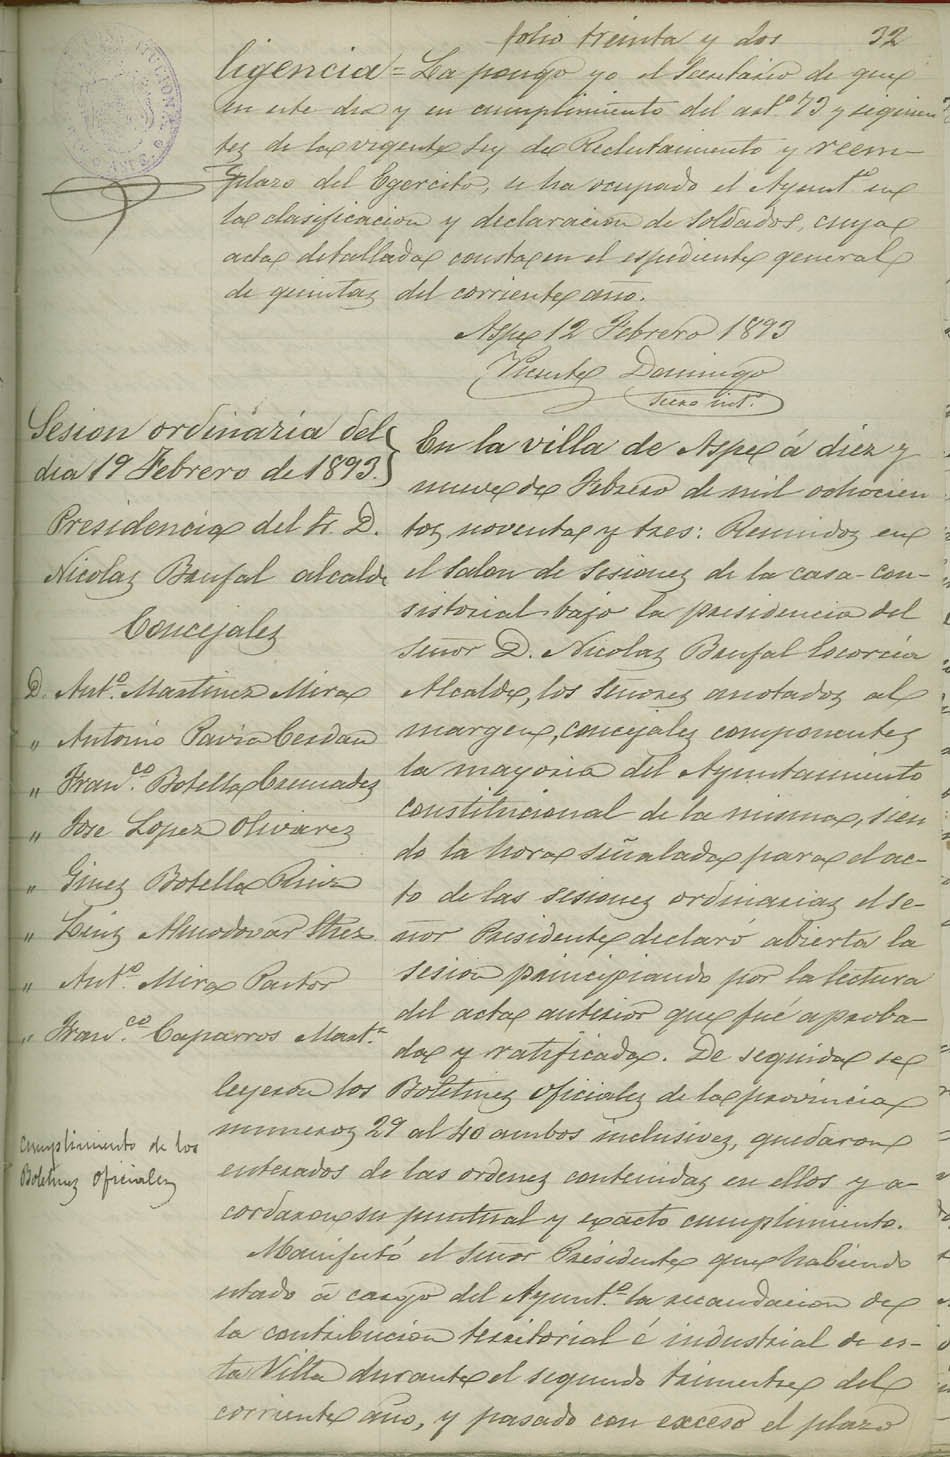 folio treinta y dos 32
ligencia = La pongo yo el Secretario de que
en este dia y en cumplimiento del artº. 73 y siguien
tes de la vigente Ley de Reclutamiento y reem-
plazo del Egercito, se ha ocupado el Ayuntº en
la clasificacion y declaracion de Soldados, cuya
acta detallada consta en el espediente general
de quintas del corriente año.
Aspe 12 Febrero 1893
Vicente Domingo
Secro intº.
Sesion ordinaria del
dia 19 Febrero de 1893.
Presidencia del Sr. D.
Nicolas Brufal alcalde
Concejales
D. Antº. Martinez Mira
" Antonio Pavia Cerdan
" Franco. Botella Cremades
" Jose Lopez Olivarez
" Ginez Botella
" Almodovar
" Antº. Mira Pastor
" Franco. Caparros Martz
cumplimiento de los
Boletines oficiales
En la villa de Aspe á diez y
nueve de Febrero de mil ochocien
tos noventa y tres: Reunidos en
el Salon de Sesiones de la casa-con-
sistorial bajo la presidencia del
Señor D. Nicolas Brufal Escorcia
Alcalde, los Señores anotados al
margen, concejales componentes
la mayoria del Ayuntamiento
constitucional de la misma, sien
do la hora señalada para el ac-
to de las sesiones ordinarias el se-
ñor Presidente declaró abierta la
sesion principiando por la lectura
del acta anterior que fué aproba-
da y ratificada. De seguida se
leyeron los Boletines oficiales de la provincia
numeros 29 al 40 ambos inclusives, quedaron
enterados de las ordenes contenidas en ellos y a-
cordaron su puntual y exacto cumplimiento.
Manifestó el Señor Presidente que habiendo
estado á cargo del Ayuntº. la recaudacion de
la contribucion territorial é industrial de es-
ta Villa durante el segundo trimestre del
corriente año, y pasado con exceso el plazo